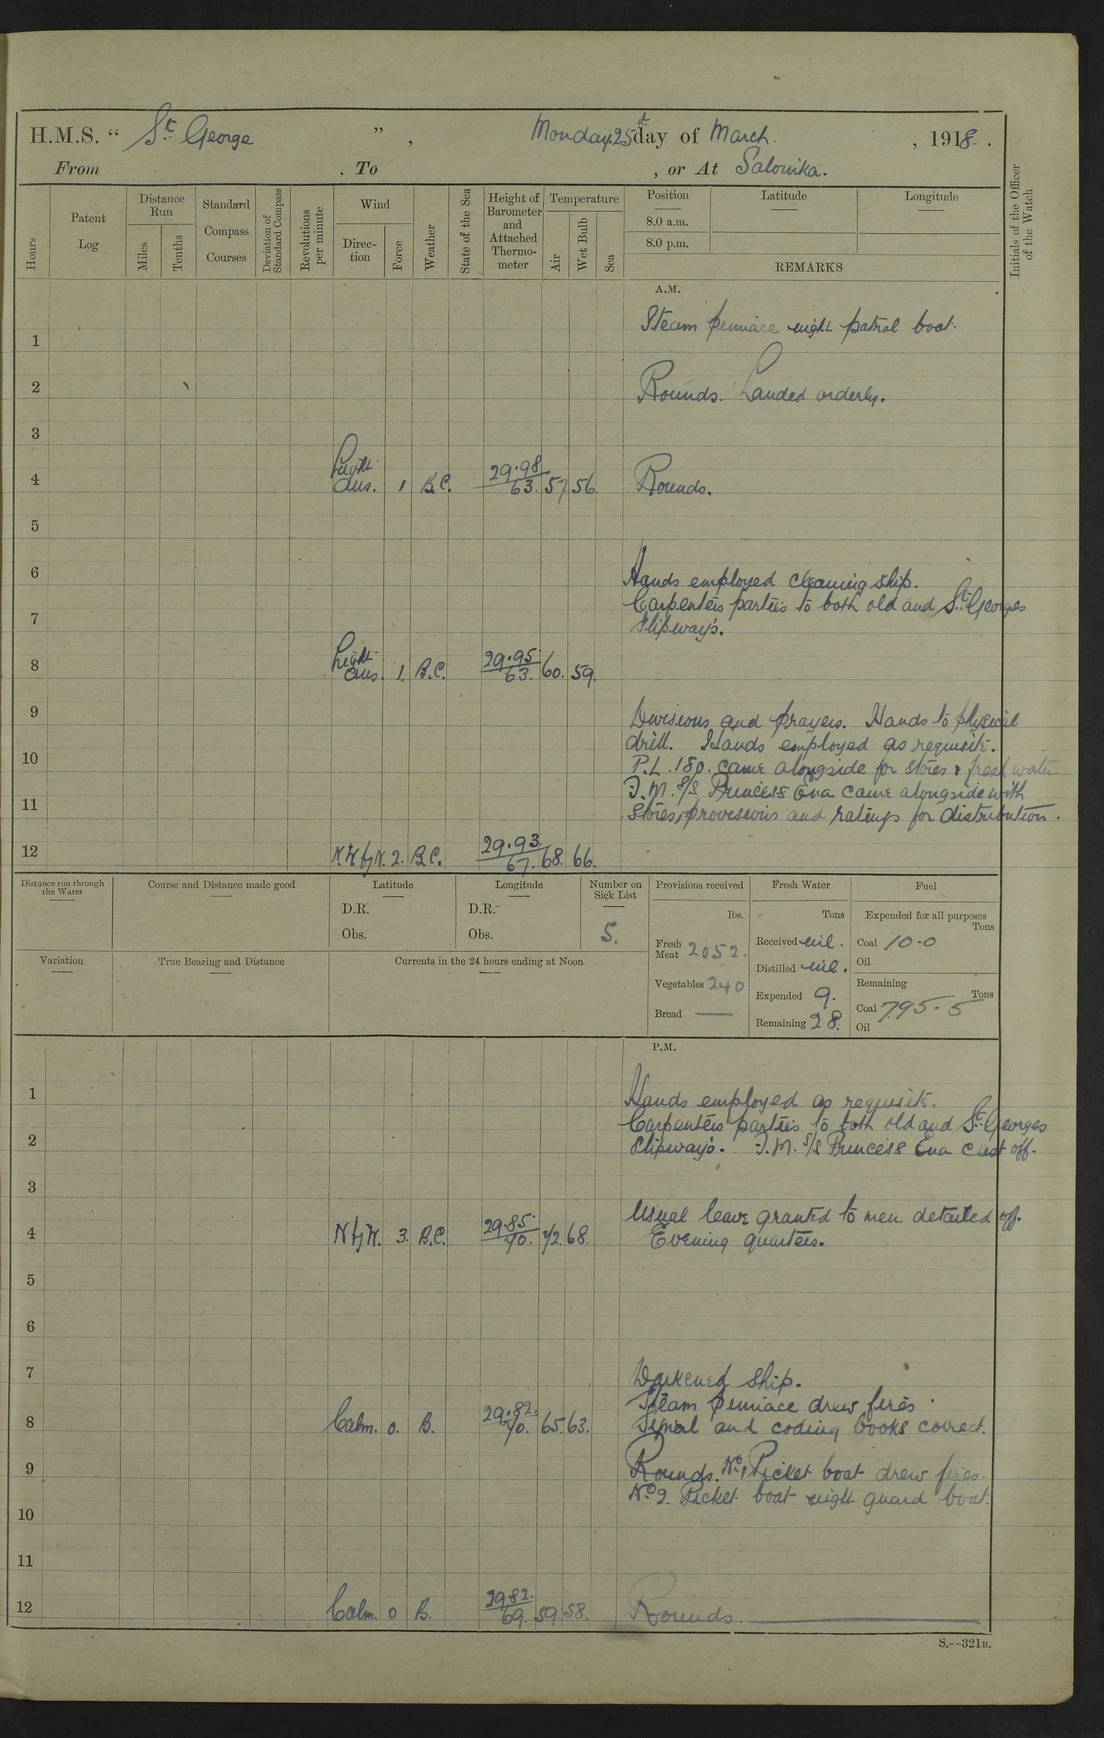 H.M.S. “ St George ” , Monday 25th day of March , 1918 .
From . To , or At Salonika.
Hours
Patent Log
Distance Run
Miles
Tenths
Standard Compass Courses
Deviation of Standard Compass
Revolutions per minute
Wind
Direction
Force
Weather
State of the Sea
Height of Barometer and Attached Thermometer
Temperature
Air
Wet Bulb
Sea
Position
Latitude
Longitude
8.0 a.m.
8.0 p.m.
REMARKS
Initials of the Officer of the Watch
A.M.
1 Steam pinnace night patrol boat.
2 Rounds. Landed orderly.
3
4 Light airs. 1 B.C. 29.98 63. 57. 56. Rounds.
5
6 Hands employed cleaning ship.
Carpenters parties to both old and St Georges
7 Slipway's.
8 Light airs 1. B.C. 29.95. 63. 60. 59.
9 Divisions and prayers. Hands to physical
drill. Hands employed as requisite.
10 P.L. 180. came alongside for stores & fresh water.
F.M. S/S Princess Ena came alongside with
11 Stores, provisions and ratings for distribution.
12 N.W by N. 2. B.C. 29.93. 67. 68. 66.
Distance run through the Water
Course and Distance made good
Latitude
D.R.
Obs.
Longitude
D.R.
Obs.
Number on Sick List
5.
Provisions received
lbs.
Fresh Meat 2052.
Vegetables 240
Bread —
Fresh Water
Tons
Received nil.
Distilled nil.
Expended 9.
Remaining 28.
Fuel
Expended for all purposes
Tons
Coal 10.0
Oil
Remaining
Tons
Coal 795.5
Oil
Variation
True Bearing and Distance
Currents in the 24 hours ending at Noon
P.M.
1 Hands employed as requisite.
Carpenters parties to both old and St Georges
2 Slipway's. F.M. S/S Princess Ena cast off.
3
Usual leave granted to men detailed off.
4 N by W. 3. B.C. 29.85. 70. 72. 68. Evening quarters.
5
6
7 Darkened ship.
Steam pinnace drew fires.
8 Calm. 0. B. 29.82. 70. 65. 63. Signal and coding books correct.
9 Rounds. No 1 Picket boat drew fires.
No 2. Picket boat night guard boat.
10
11
12 Calm. 0 B. 29.82. 69. 59. 58. Rounds.
S.—321B.